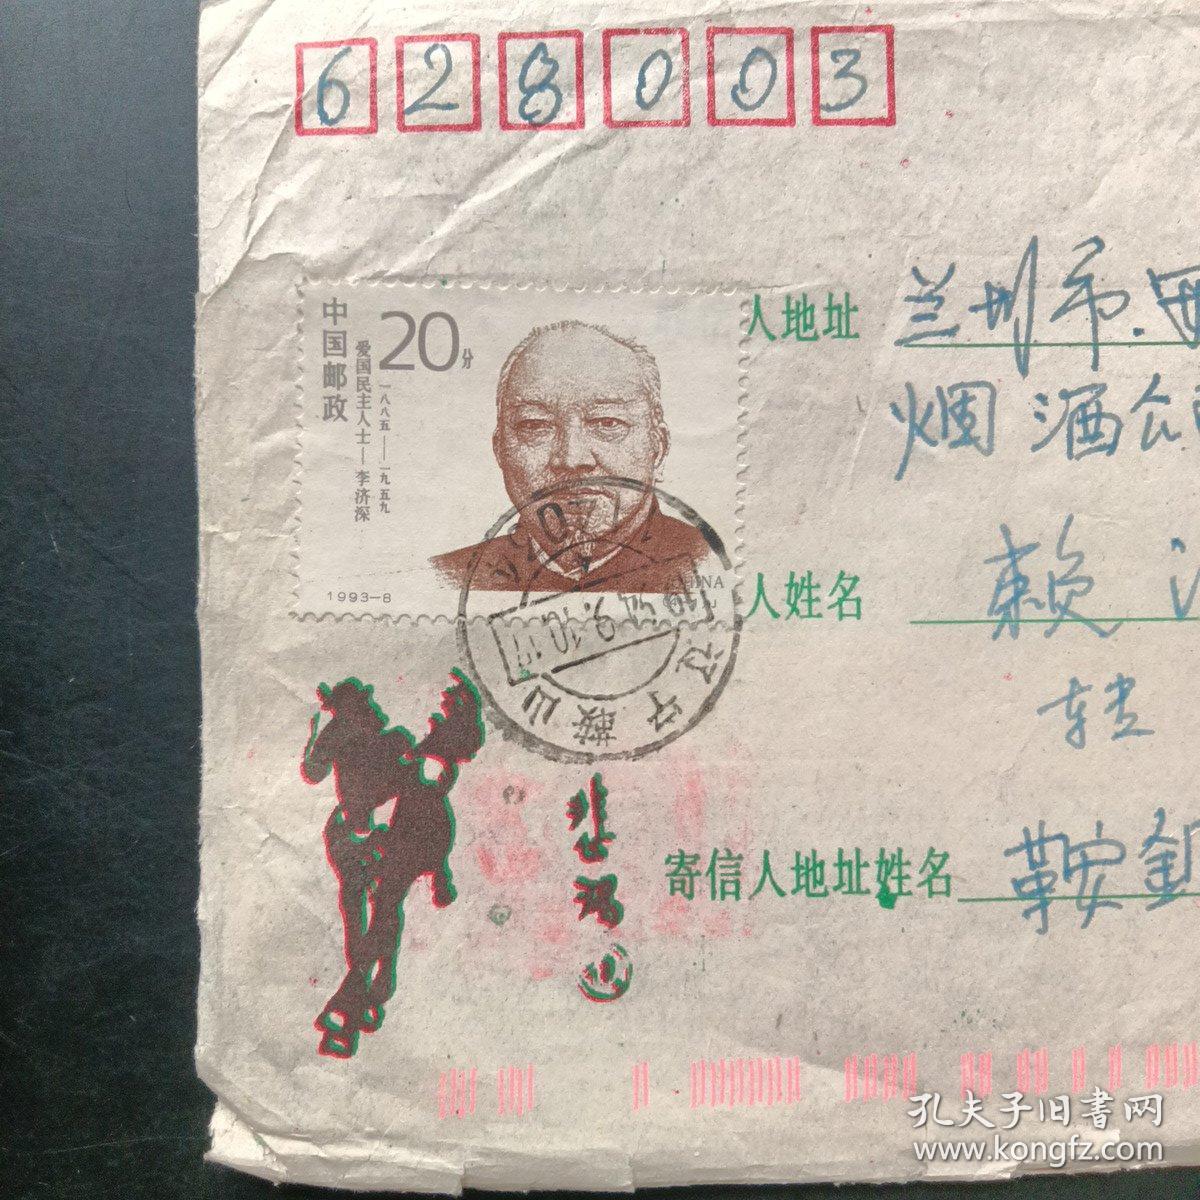 628003
中国邮政
20分
爱国民主人士—李济深
一八八五—一九五九
1993-8
人地址 兰州市.西
烟酒公司
人姓名 赖
转
辽宁鞍山
悲鸿
寄信人地址姓名 鞍
孔夫子旧书网
www.kongfz.com